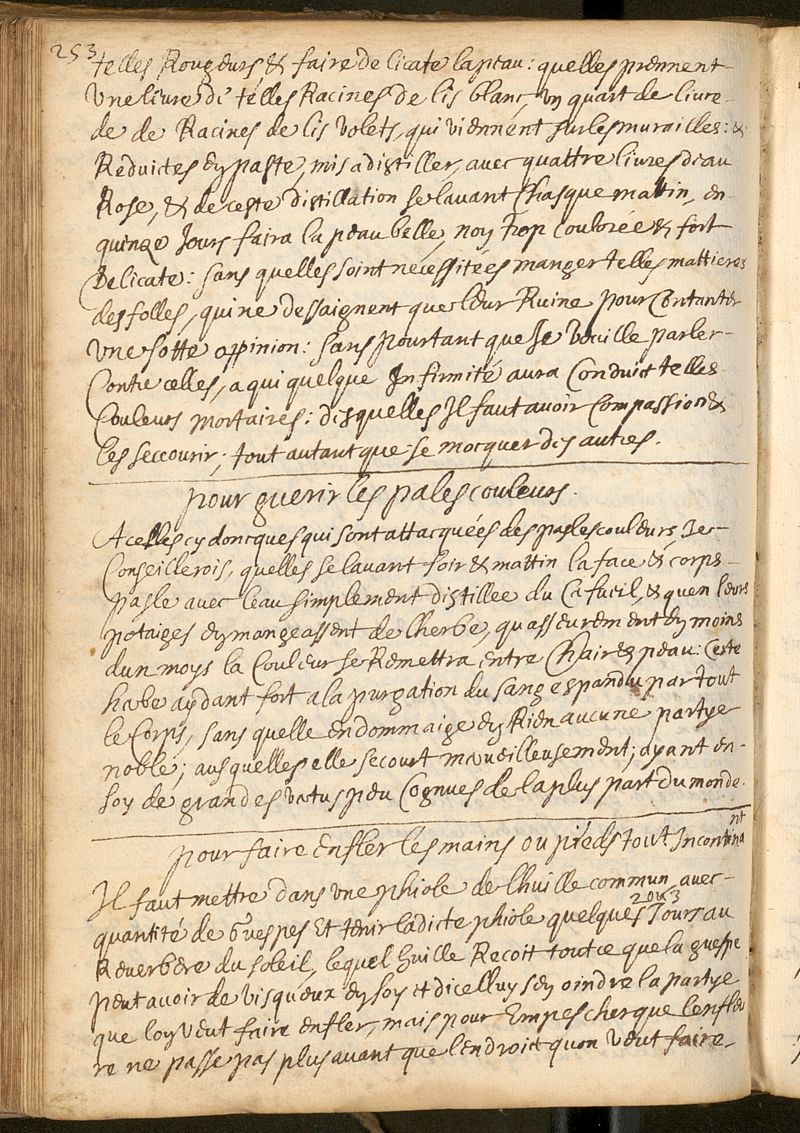 253
telles Rougeurs & faire delicate la peau: quelles prennent
Une livre de telles Racines de lis blanc, un quart de livre
de de Racines de lis volets, qui viennent sur les murailles: &
Reduictes en paste, mis a distiller, avec quattre livres deau
Rose, & de ceste distillation se lavant Chasque mattin, en
quinze Jours faira la peau belle, non trop Coulorée & fort
Delicate: sans quelles soint necessitées manger telles mattieres
des folles, qui ne dessaignent que leur Ruine pour Contanter
Une sotte oppinion: sans pourtant que Je veuille parler
Contre celles, a qui quelque Infirmité aura Conduict telles
Couleurs mortaires: desquelles Il faut avoir Compassion &
les seccourir, tout autant que se mocquer des autres.
pour guerir les pales couleurs.
A celles cy doncques qui sont attacquées des pasles couleurs Je
Conseillerois, quelles se lavant soir & mattin la face & corps
pasle avec leau simplement distillee du Cifueil, & quen leurs
potaiges en mangeassent de lherbe, quasseurement en moins
dun moys la Couleur se Remettra entre Chair & peau: Ceste
habe aydant fort a la purgation du sang espandu par tout
le Corps, sans quelle endommaige en Rien aucune partye
noble; ausquelles elle secourt mervueilleusement; ayant en
soy de grandes vertus peu Cognues de la plus part du monde.
pour faire Enfler les mains ou pieds tout Incontinant
Il faut mettre dans une phiole de lhuille commun avec
quantité de guespes Et tenir ladicte phiole quelques 2 ou 3 Jours au
Reverbere du soleil, lequel huille Recoit tout ce que la guespe
peut avoir de visqueux en soy et dicelluy sen oindre la partye
que lon veut faire enfler, mais pour Empescher que lenfleu
re ne passe pas plus avant que lendroict quon veut faire